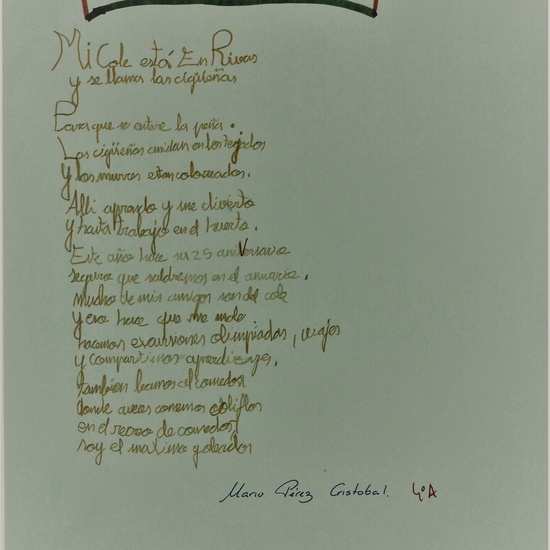 Mi Cole está En Rivas
y se llama las cigüeñas
Para que se entere la peña.
Las cigüeñas anidan en los tejados
y los muros estan coloreados.
Alli aprendo y me divierto
y hasta trabajo en el huerto.
Este año hace su 25 aniVersario
seguro que saldremos en el anuario,
mucho de mis amigos son del cole
y eso hace que me mole
hacemos excursiones olimpiadas, viajes
y compartimos aprendizajes,
tambien vamos al comedor
donde aveces comemos coliflor
en el recreo de comedor
soy el maximo goleador
Mario Pérez Cristobal. 4ºA